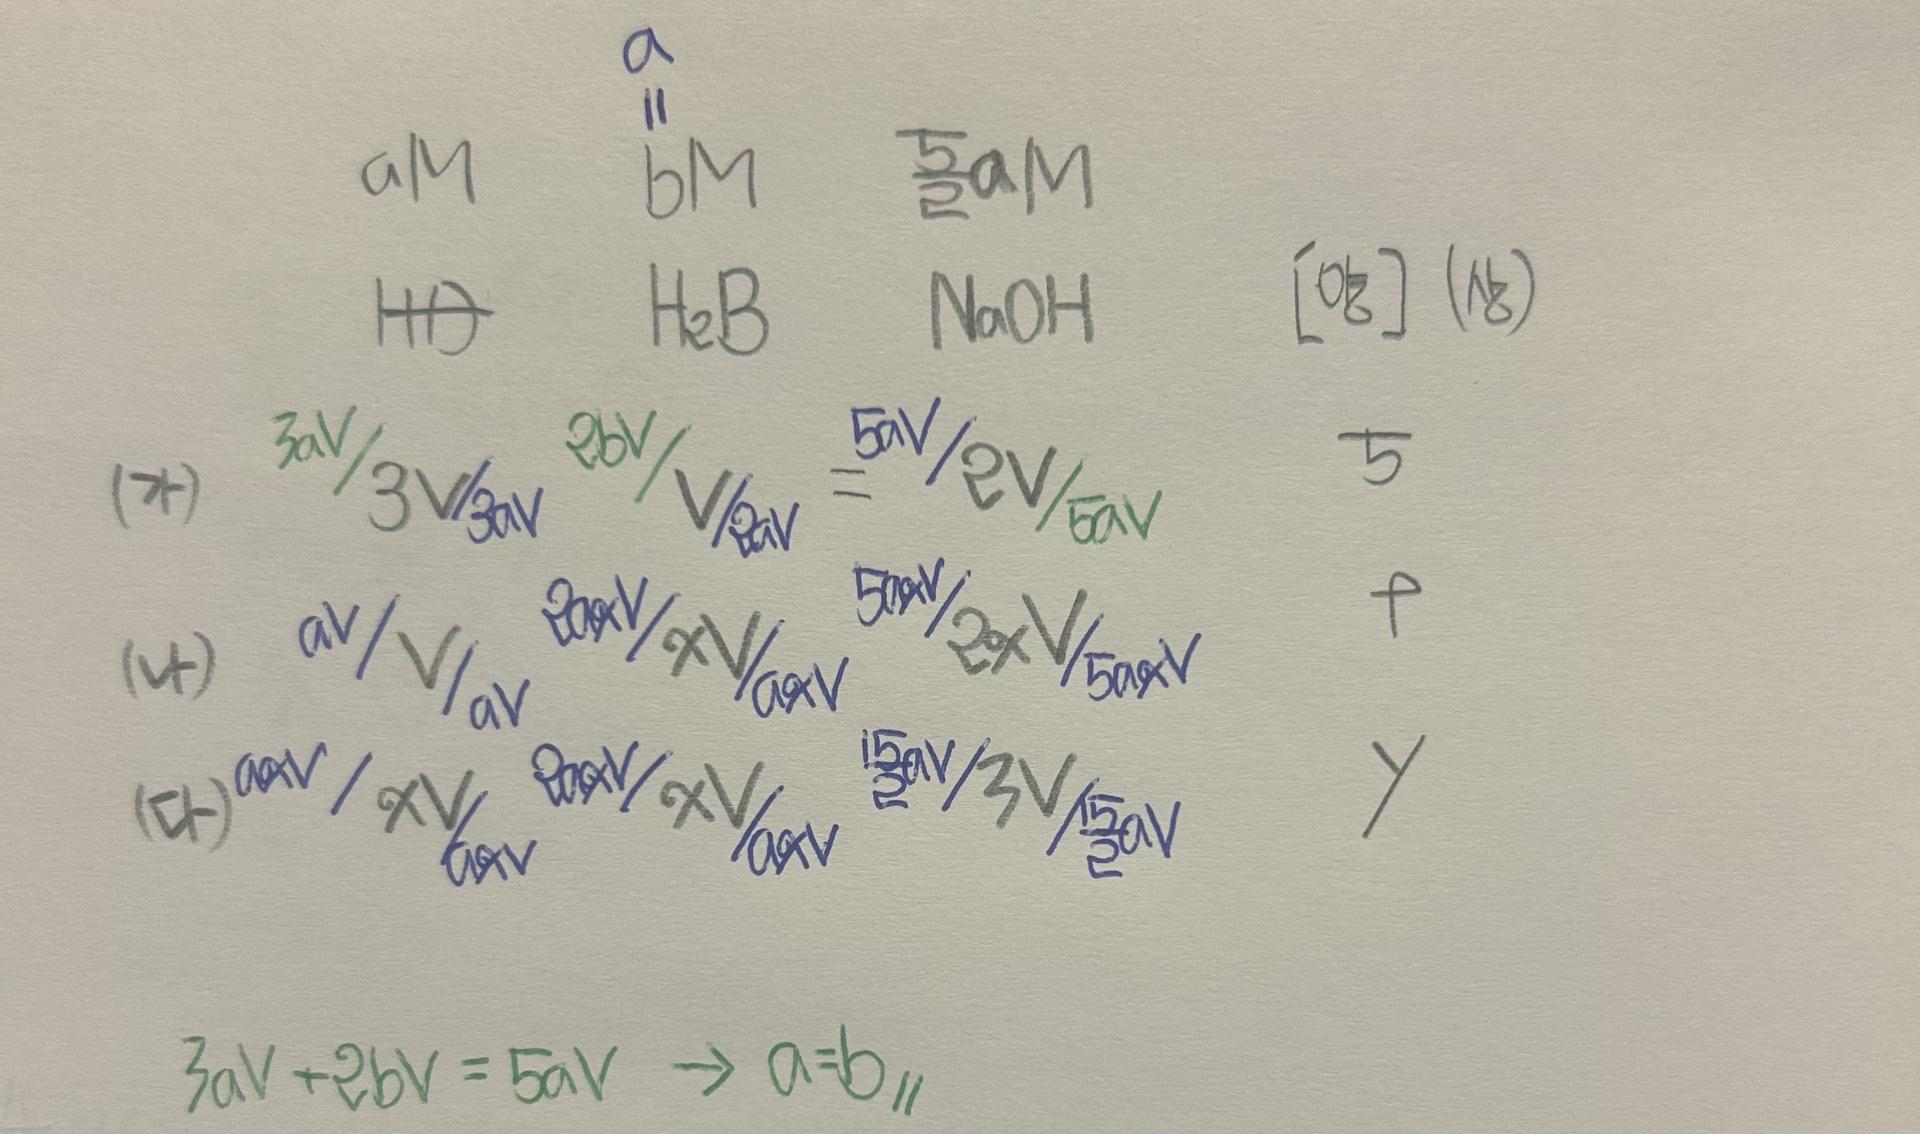 a
=
aM bM 5/2aM
HA H₂B NaOH [양] (상)
(가) 3aV/3V/3aV 2bV/V/2aV = 5aV/2V/5aV 5
(나) aV/V/aV 2axV/xV/axV 5axV/2xV/5axV P
(다) axV/xV/axV 2axV/xV/axV 15/2aV/3V/15/2aV y
3aV+2bV=5aV → a=b〃